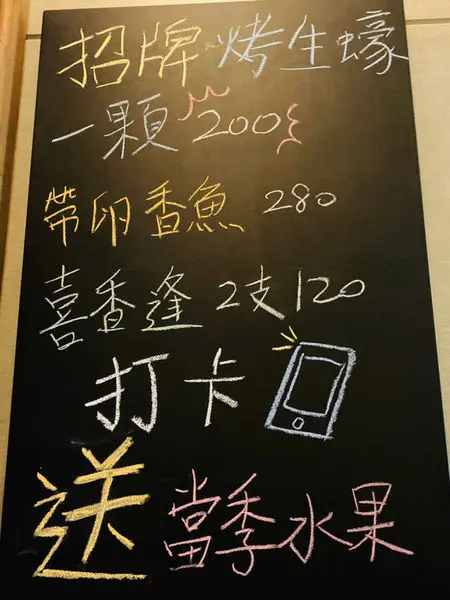 招牌烤生蠔
一顆 200
帶卵香魚 280
喜香逢 2支120
打卡
送當季水果